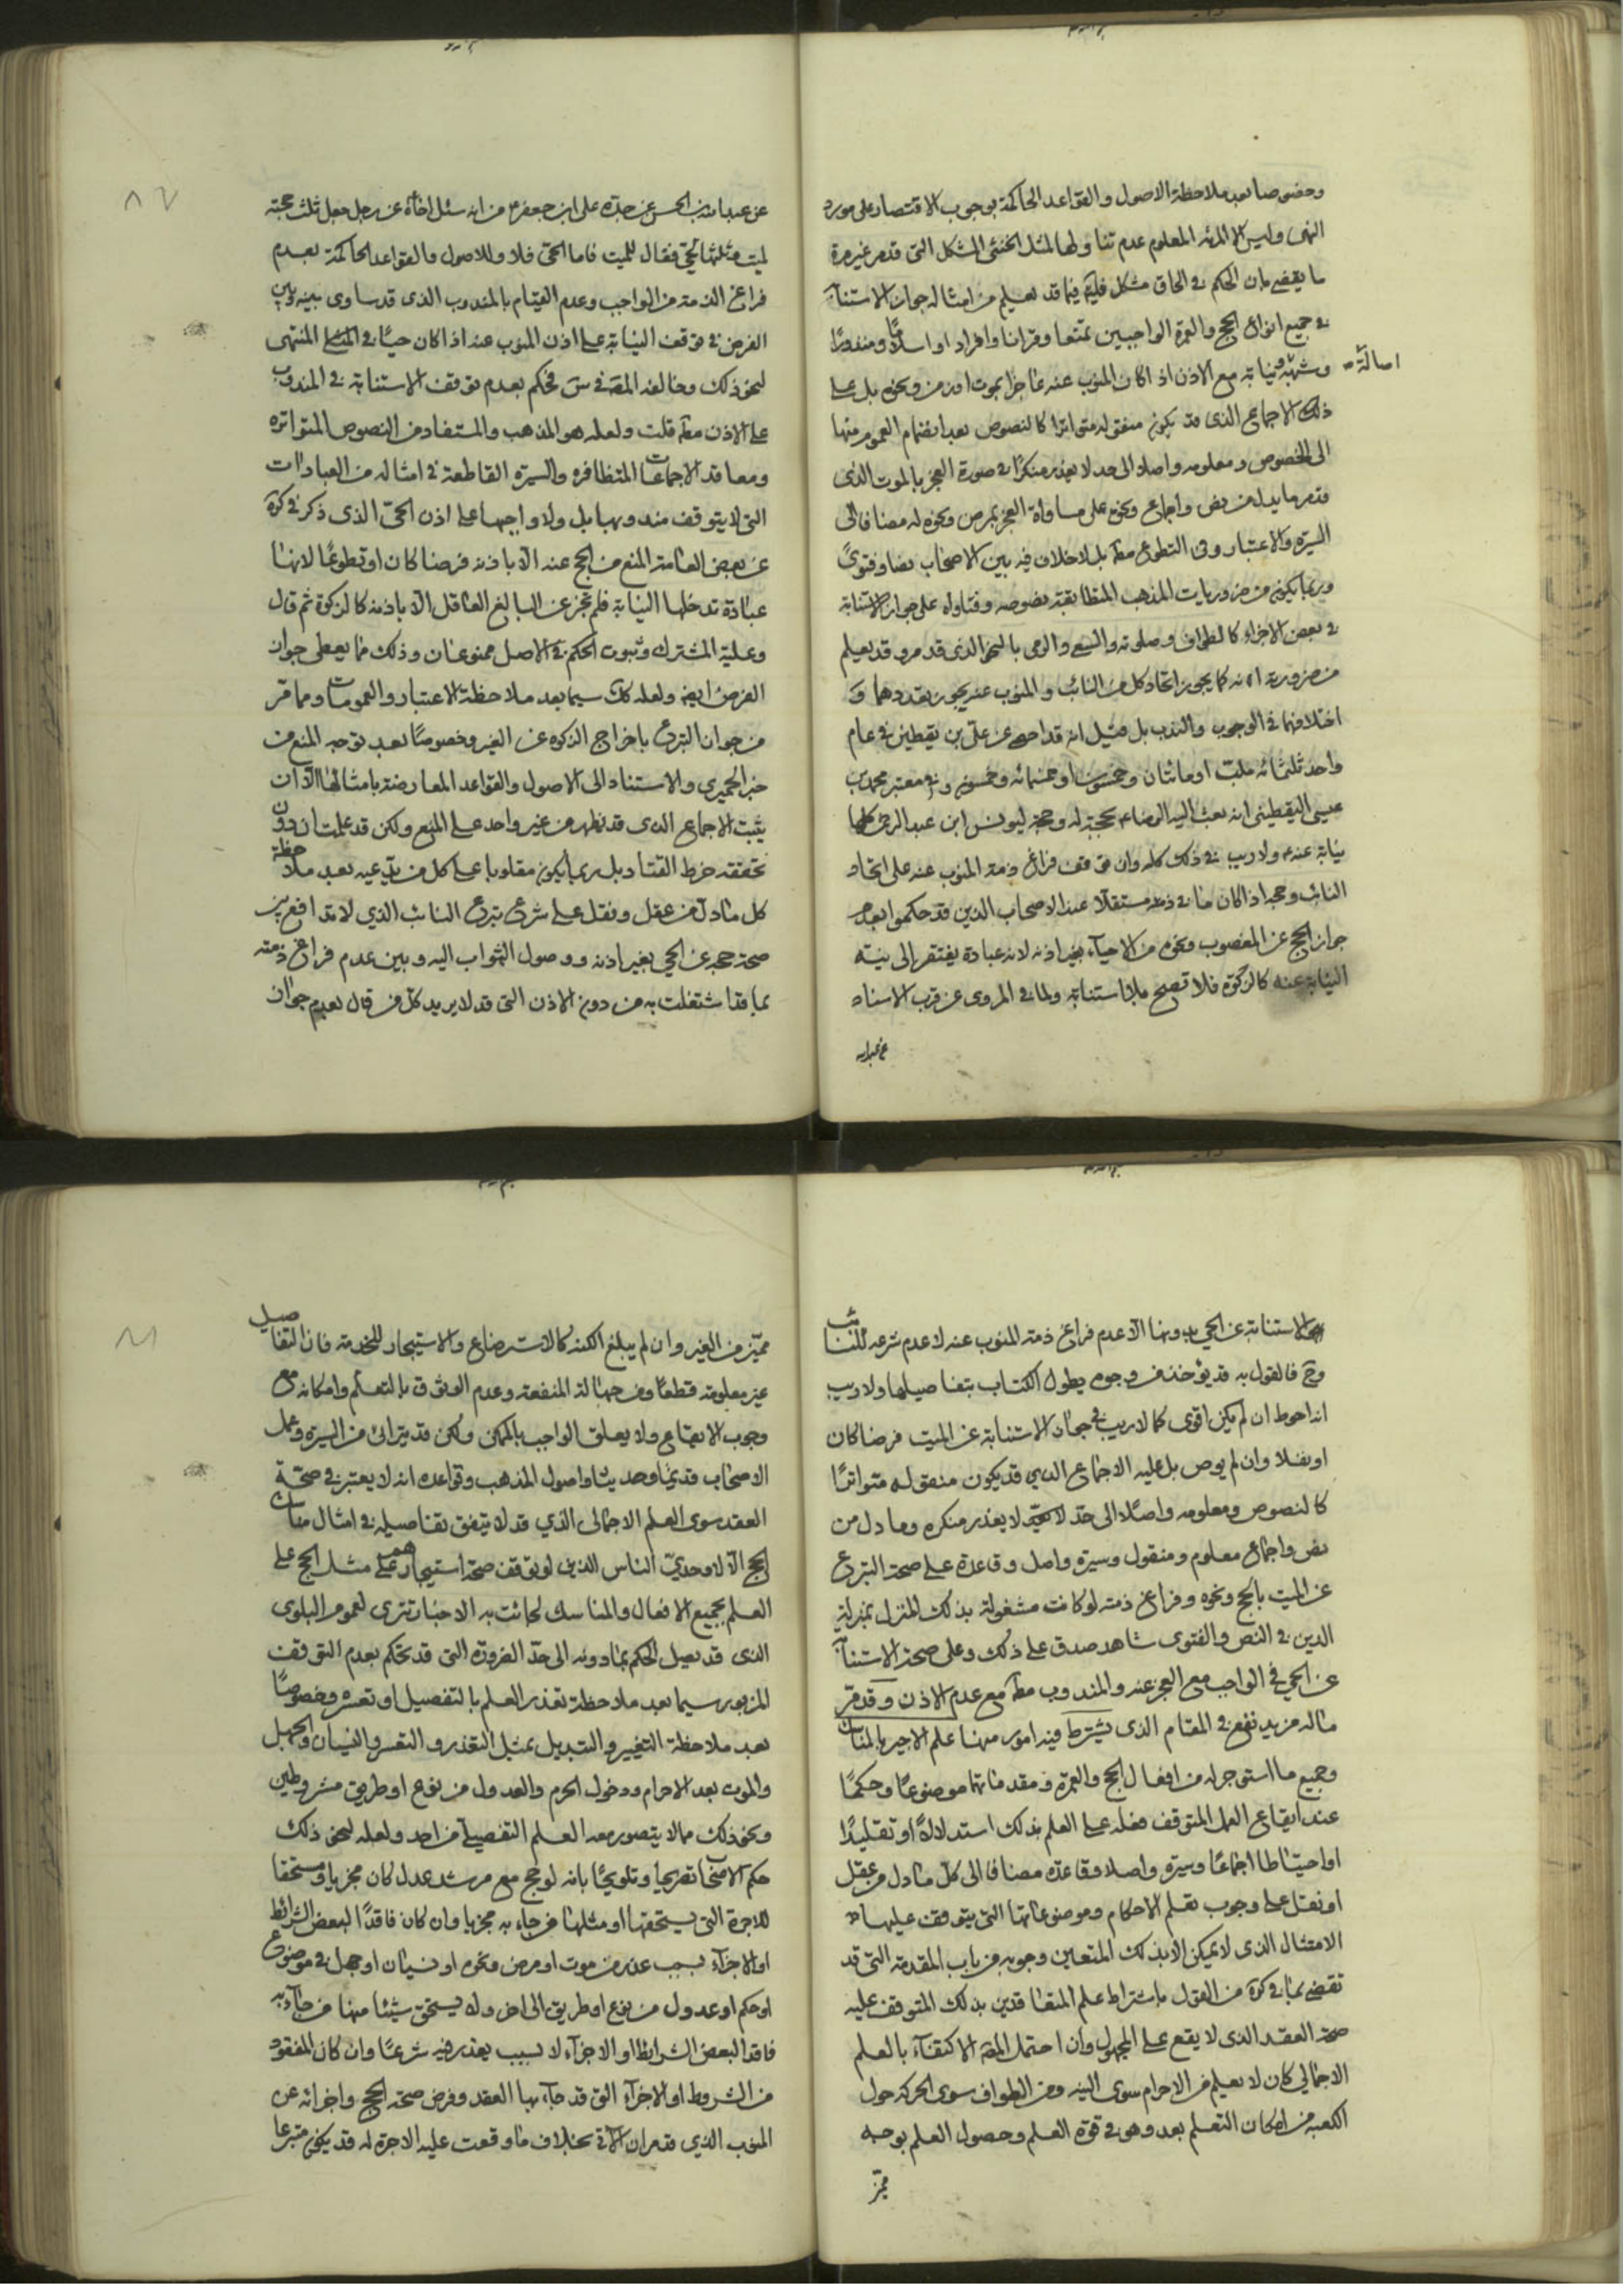 وخصوصا بعد ملاحظة الاصول والقواعد الحاكمة بوجوب الاقتصار على مورد
النص وليس الا المرئة المعلوم عدم تناولها لمثل الخنثى المشكل التى قد مر غير مرة
ما يقضى بان الحكم فى الحاق مشكل فيما قد يعلم من امثاله جواز الاستنابة
فى جميع انواع الحج والعمرة الواجبين تمتعا وقرانا وافراد او اسلاميا ومنذورا
اصالة
ونيابة مع الاذن اذ اكان المنوب عنه عاجزا بموت او زمن ونحوه بل على
ذلك الاجماع الذى قد يكون منقوله متواترا كالنصوص بعد انضمام العموم منها
الى الخصوص ومعلومه واصلا الى حد لا يعذر منكره فى صورة العجز بالموت الذى
قد مر ما يدل من نص واجماع ونحوه على مساواة العجز بمرض ونحوه له مضافا الى
السيرة والاعتبار وفى التطوع مطلقا بل لا خلاف فيه بين الاصحاب نصا وفتوى
وربما يكون من ضروريات المذهب المتطابقة نصوصه وفتاواه على جواز الاستنابة
فى بعض الاجزاء كالطواف وصلوته والسعى والرمى بالنحو الذى قد مر وقد يعلم
من ضرورية انه كما يجوز اتحاد كل من النائب والمنوب عنه يجوز تعددهما و
اختلافهما فى الوجوب والندب بل قيل انه قد احصى عن على بن يقطين فى عام
واحد ثلثمائه ملب او مائتان وخمسون او خمسمائه وخمسون وفى معتبر محمد بن
عيسى اليقطينى انه بعث اليه الرضاء بحجة له وحجة ليونس ابن عبد الرحمن كلها
نيابة عنه ولا ريب فى ذلك كله وان توقف فراغ ذمة المنوب عنه على اتحاد
النائب وحجه اذا كان ما فى ذمته مستقلا عند الاصحاب الذين قد حكموا بعدم
جواز الحج عن المغصوب ونحوه من الاحياء بغير اذنه لانه عبادة يفتقر الى نية
النيابة عنه كالزكوة فلا تصح بلا استنابة ولما فى المروى عن قرب الاسناد
عن عبد الله
عن عبد الله بن الحسن عن جده على بن جعفر من انه سئل اخاه عن رجل جعل ثلث حجته
لميت وثلثيها لحى فقال للميت فاما الحى فلا وللاصول والقواعد الحاكمة بعدم
فراغ الذمة من الواجب وعدم القيام بالمندوب الذى قد ساوى بينه وبين
الفرض فى توقف النيابة على اذن المنوب عنه اذا كان حيا فى المنتهى
لنحو ذلك وخالفه المصنف فى س فحكم بعدم توقف الاستنابة فى المندوب
على الاذن مطلقا قلت ولعله هو المذهب والمستفاد من النصوص المتواتره
ومعاقد الاجماعات المتظافره والسيرة القاطعة فى امثاله من العبادات
التى لا يتوقف مندوبها بل ولا واجبها على اذن الحى الذى ذكر فى كرة
عن بعض العامة المنع من الحج عنه الا باذنه فرضا كان او تطوعا لانها
عبادة تدخلها النيابة فلم تجز عن البالغ العاقل الا باذنه كالزكوة ثم قال
وعلية المشترك وثبوت الحكم فى الاصل ممنوعان وذلك مما يعطى جواز
الفرض ايضا ولعله كك سيما بعد ملاحظة الاعتبار والعمومات وما مر
من جواز التبرع باخراج الزكوه عن الغير وخصوصا بعد توجه المنع من
خبر الحميرى والاستناد الى الاصول والقواعد المعارضة بامثالها الا ان
يثبت الاجماع الذى قد يظهر من غير واحد على المنع ولكن قد علمت ان دون
تحققه خرط القتاد بل ربما يكون مقلوبا على كل من يدعيه بعد ملاحظة
كل ما دل من عقل ونقل على شرع تبرع النائب الذي لا تدافع بين
صحة حجه عن الحي بغير اذنه ووصول الثواب اليه وبين عدم فراغ ذمته
بما قد اشتغلت به من دون الاذن التى قد لا يريد كل من قال بعدم جواز
الاستنابة عن الحي بدونها الا عدم فراغ ذمة المنوب عنه لا عدم شرعه للنائب
وح فالقول به قد يؤخذ من وجوه يطول الكتاب بتفاصيلها ولا ريب
انه احوط ان لم يكن اقوى كما لا ريب فى جواز الاستنابة عن الميت فرضا كان
او نفلا وان لم يوص بل عليه الاجماع الذي قد يكون منقوله متواترا
كالنصوص ومعلومه واصلا الى حد لا يعذر منكره وما دل من
نص واجماع معلوم ومنقول وسيرة واصل وقاعدة على صحة التبرع
عن الميت بالحج ونحوه وفراغ ذمته لو كانت مشغولة بذلك المنزل بمنزلة
الدين فى النص والفتوى شاهد صدق على ذلك وعلى صحة الاستنابة
عن الحي فى الواجب مع العجز عنه والمندوب مطلقا مع عدم الاذن وقد مر
ماله مزيد نفع فى المقام الذى يشترط فيه امور منها علم الاجير بالمناسك
وجميع ما استوجر له من افعال الحج والعمرة ومقدماتها موضوعا وحكما
عند ايقاع العمل المتوقف فعله على العلم بذلك استدلالا او تقليدا
او احتياطا اجماعا وسيرة واصلا وقاعدة مضافا الى كل ما دل من عقل
او نقل على وجوب تعلم الاحكام وموضوعاتها التى يتوقف عليها
الامتثال الذى لا يمكن الا بذلك المتعين وجوبه من باب المقدمة التى قد
تقضى بما فى كرة من القول باشتراط علم المتعاقدين بذلك المتوقف عليه
صحة العقد الذى لا يقع على المجهول وان احتمل المصنف الاكتفاء بالعلم
الاجمالي كان لا يعلم من الاحرام سوى النية ومن الطواف سوى الحركة حول
الكعبة من امكان التعلم بعد وهو فى قوة العلم وحصول العلم بوجه
مميز
مميز من الغير وان لم يبلغ الكنه كالاسترضاع والاستيجار للخدمة فان التفاصيل
غير معلومة قطعا ومن جهالة المنفعة وعدم الوثوق بالتعلم وامكانه مع
وجوب الايقاع ولا يعلق الواجب بالممكن ولكن قد يترائى من السيرة وعمل
الاصحاب قديما وحديثا واصول المذهب وقواعده انه لا يعتبر فى صحة
العقد سوى العلم الاجمالى الذي قد لا يتفق تفاصيله فى امثال مناسك
الحج الا لاوحدي الناس الذين لو توقف صحة استيجارهم على مثل الحج على
العلم بجميع الافعال والمناسك لجائت به الاخبار تترى لعموم البلوى
الذى قد يصل الحكم بما دونه الى حد الضرورة التى قد تحكم بعدم التوقف
المزبور سيما بعد ملاحظة تعذر العلم بالتفصيل او تعسره وخصوصا
بعد ملاحظة التغيير والتبديل بمثل التعذر والتعسر والنسيان والجهل
والموت بعد الاحرام ودخول الحرم والعدول من نوع او طريق مشروطين
ونحو ذلك مما لا يتصور معه العلم التفصيلى من احد ولعله لنحو ذلك
حكم الاصحاب تصريحا وتلويحا بانه لو حج مع مرشد عدل كان مجزيا ومستحقا
للاجرة التى يستحقها او مثلها من جاء به مجزيا وان كان فاقدا لبعض الشرائط
او الاجزاء بسبب عذر من موت او مرض ونحوه او نسيان او جهل فى موضوع
او حكم او عدول من نوع او طريق الى اخر ولا يستحق شيئا منها من جاء به
فاقد البعض الشرائط او الاجزاء لا بسبب يعذر فيه شرعا وان كان المفقود
من الشروط او الاجزاء التى قد جاء بها العقد وفرض صحة الحج واجزائه عن
المنوب الذي قد مر ان الاتى بخلاف ما وقعت عليه الاجرة له قد يكون متبرعا